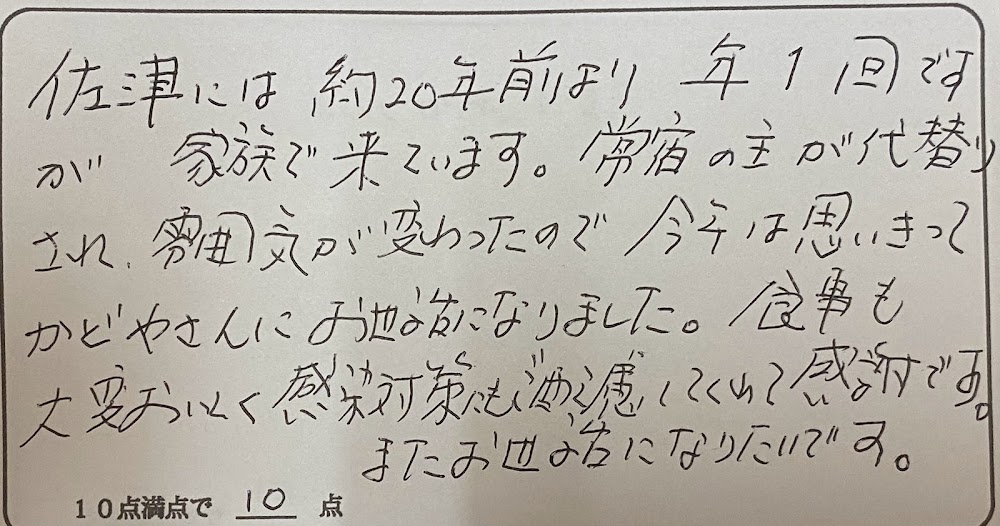 佐津には約20年前より 年1回です
が 家族で来ています。常宿の主が代替り
され、雰囲気が変わったので 今年は思いきって
かどやさんにお世話になりました。食事も
大変おいしく感染対策にも 配慮してくれて感謝です。
またお世話になりたいです。
10点満点で 10 点